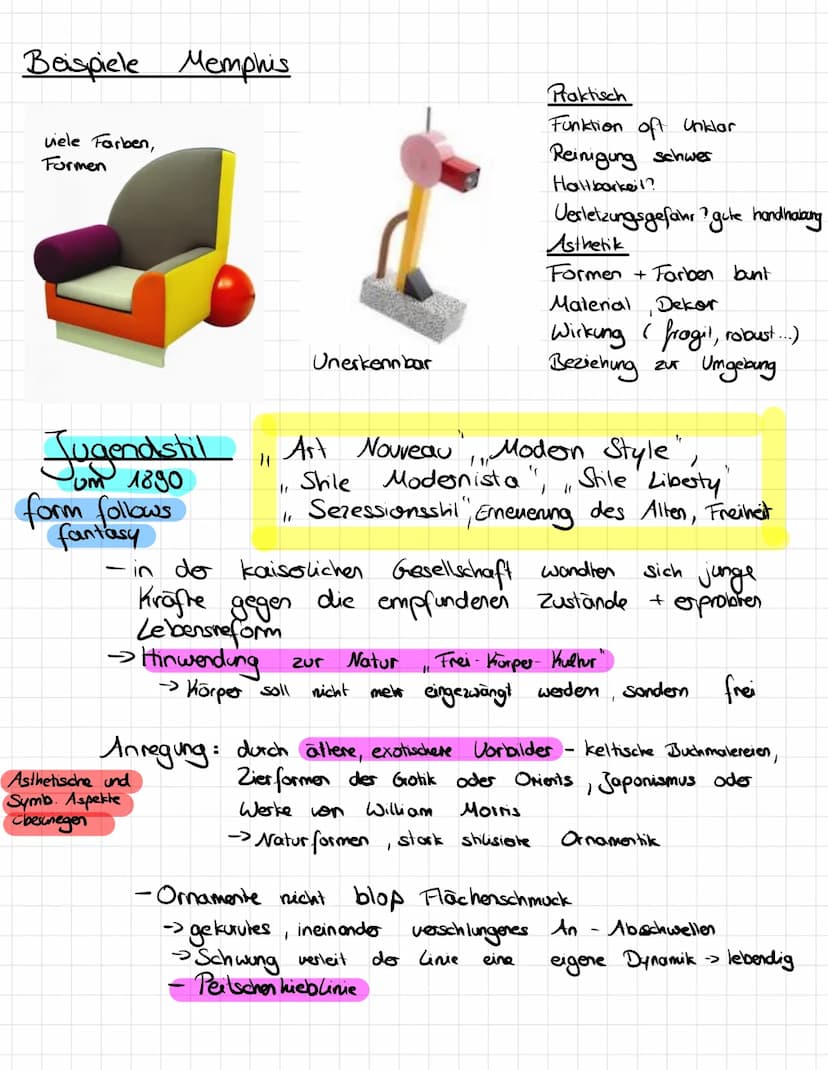 Beispiele Memphis
viele Farben,
Formen
Unerkennbar
Praktisch
Funktion oft unklar
Reinigung schwer
Haltbarkeit?
Verletzungsgefahr? gute handhabung
Ästhetik
Formen + Farben bunt
Material, Dekor
Wirkung (fragil, robust...)
Beziehung zur Umgebung
Jugendstil
um 1890
form follows
fantasy
„Art Nouveau", „Modern Style",
„Stile Modernista", „Stile Liberty"
„Sezessionsstil", Erneuerung des Alten, Freiheit
- in der kaiserlichen Gesellschaft wandten sich junge
Kräfte gegen die empfundenen Zustände + erprobten
Lebensreform
-> Hinwendung zur Natur „Frei-Körper-Kultur"
-> Körper soll nicht mehr eingezwängt werden, sondern frei
Anregung: durch ältere, exotischere Vorbilder - keltische Buchmalereien,
Zierformen der Gotik oder Orients, Japonismus oder
Werke von William Morris
-> Naturformen, stark stilisierte Ornamentik
Ästhetische und
Symb. Aspekte
überwiegen
- Ornamente nicht bloß Flächenschmuck
-> gekurvtes, ineinander verschlungenes An - Abschwellen
-> Schwung verleit der Linie eine eigene Dynamik -> lebendig
- Peitschenhieblinie